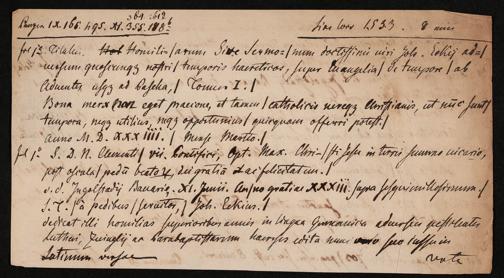 Panzer IX. 165. 495. XI. 355. 118 b
364. 612
sine loco 1533. 8 min
fol. 1a. Titulus. Homiliarum Sive Sermo=/num doctissimi viri Joh. Eckij ad=/
versum quoscunque nostri / temporis haereticos, super Evangelia / de tempore / ab
Adventu usque ad Pascha, / Tomus I. /
Bona merx non eget praecone, et tamen / catholicis vereque Christianis, ut nunc sunt /
tempora, neque utilius, neque opportunius / quicquam offerri potest. /
anno M. D. XXXIIII. / Mense Martio. /
fol. 1b. S. D. N. Clementi / vii. Pontifici, Opt. Max. Chri-/sti Jesu in terris summo vicario,
post oscula pedum beatorum, / felicitatem. /
s. d. Ingolstadij Bavariae XI. Junii. Anno gratiae XXXIII. supra sesquimillesimum. /
S. T. / a pedibus / servulus, / Joh. Eckius. /
dedicat illi homilias superioribus annis in lingua Germanica adversus pestilentes
Lutheri, Zwinglij ac Anabaptistarum haereses edita nunc suo jussu in
Latinum versae
verte